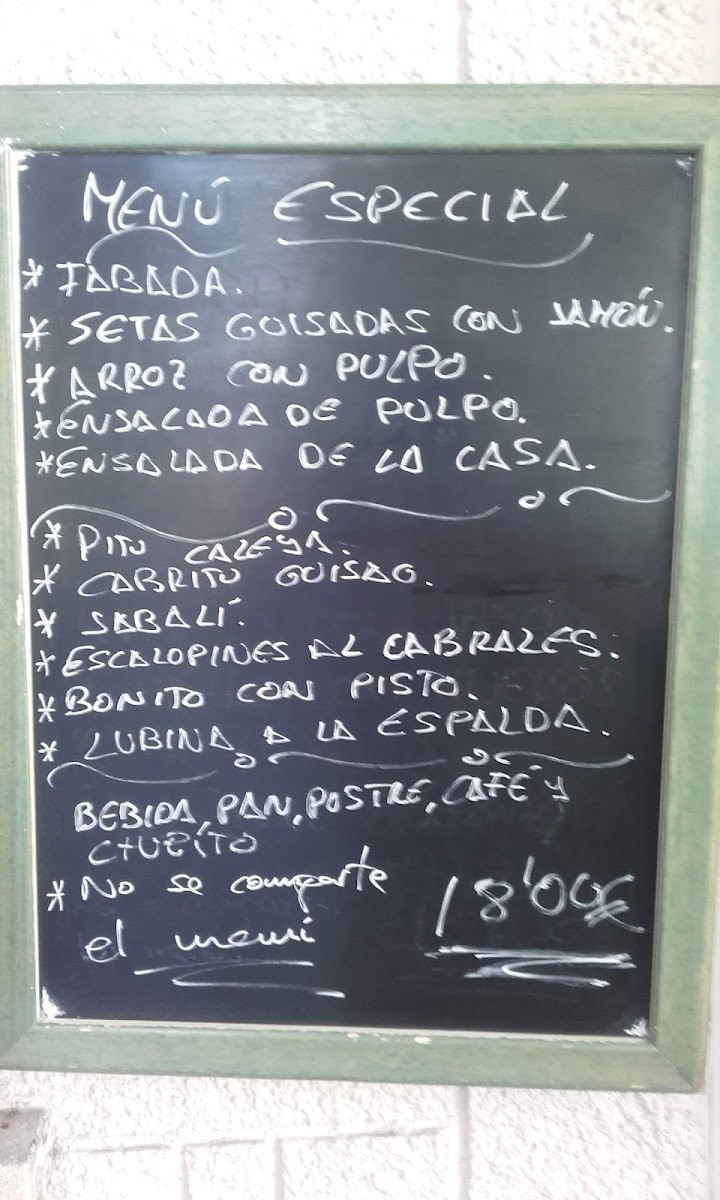 MENÚ ESPECIAL
* FABADA.
* SETAS GUISADAS CON JAMÓN.
* ARROZ CON PULPO.
* ENSALADA DE PULPO.
* ENSALADA DE LA CASA.
* PITU CALEYA.
* CABRITU GUISAO.
* JABALÍ.
* ESCALOPINES AL CABRALES.
* BONITO CON PISTO.
* LUBINA A LA ESPALDA.
BEBIDA, PAN, POSTRE, CAFÉ Y
CHUPÍTO
* No se comparte
el menú
18'00€